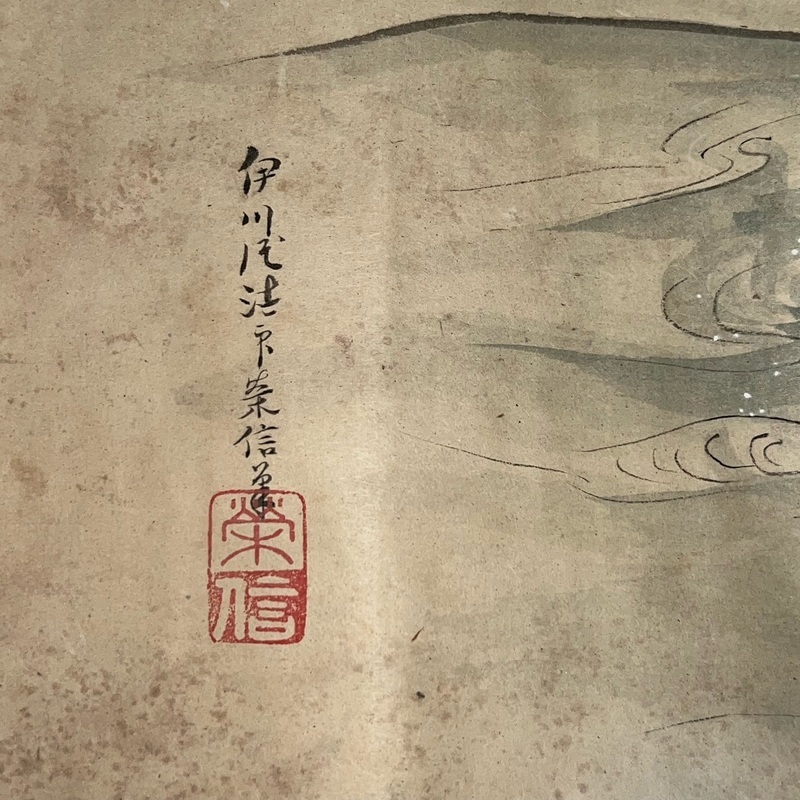 伊川院法印榮信筆
榮信